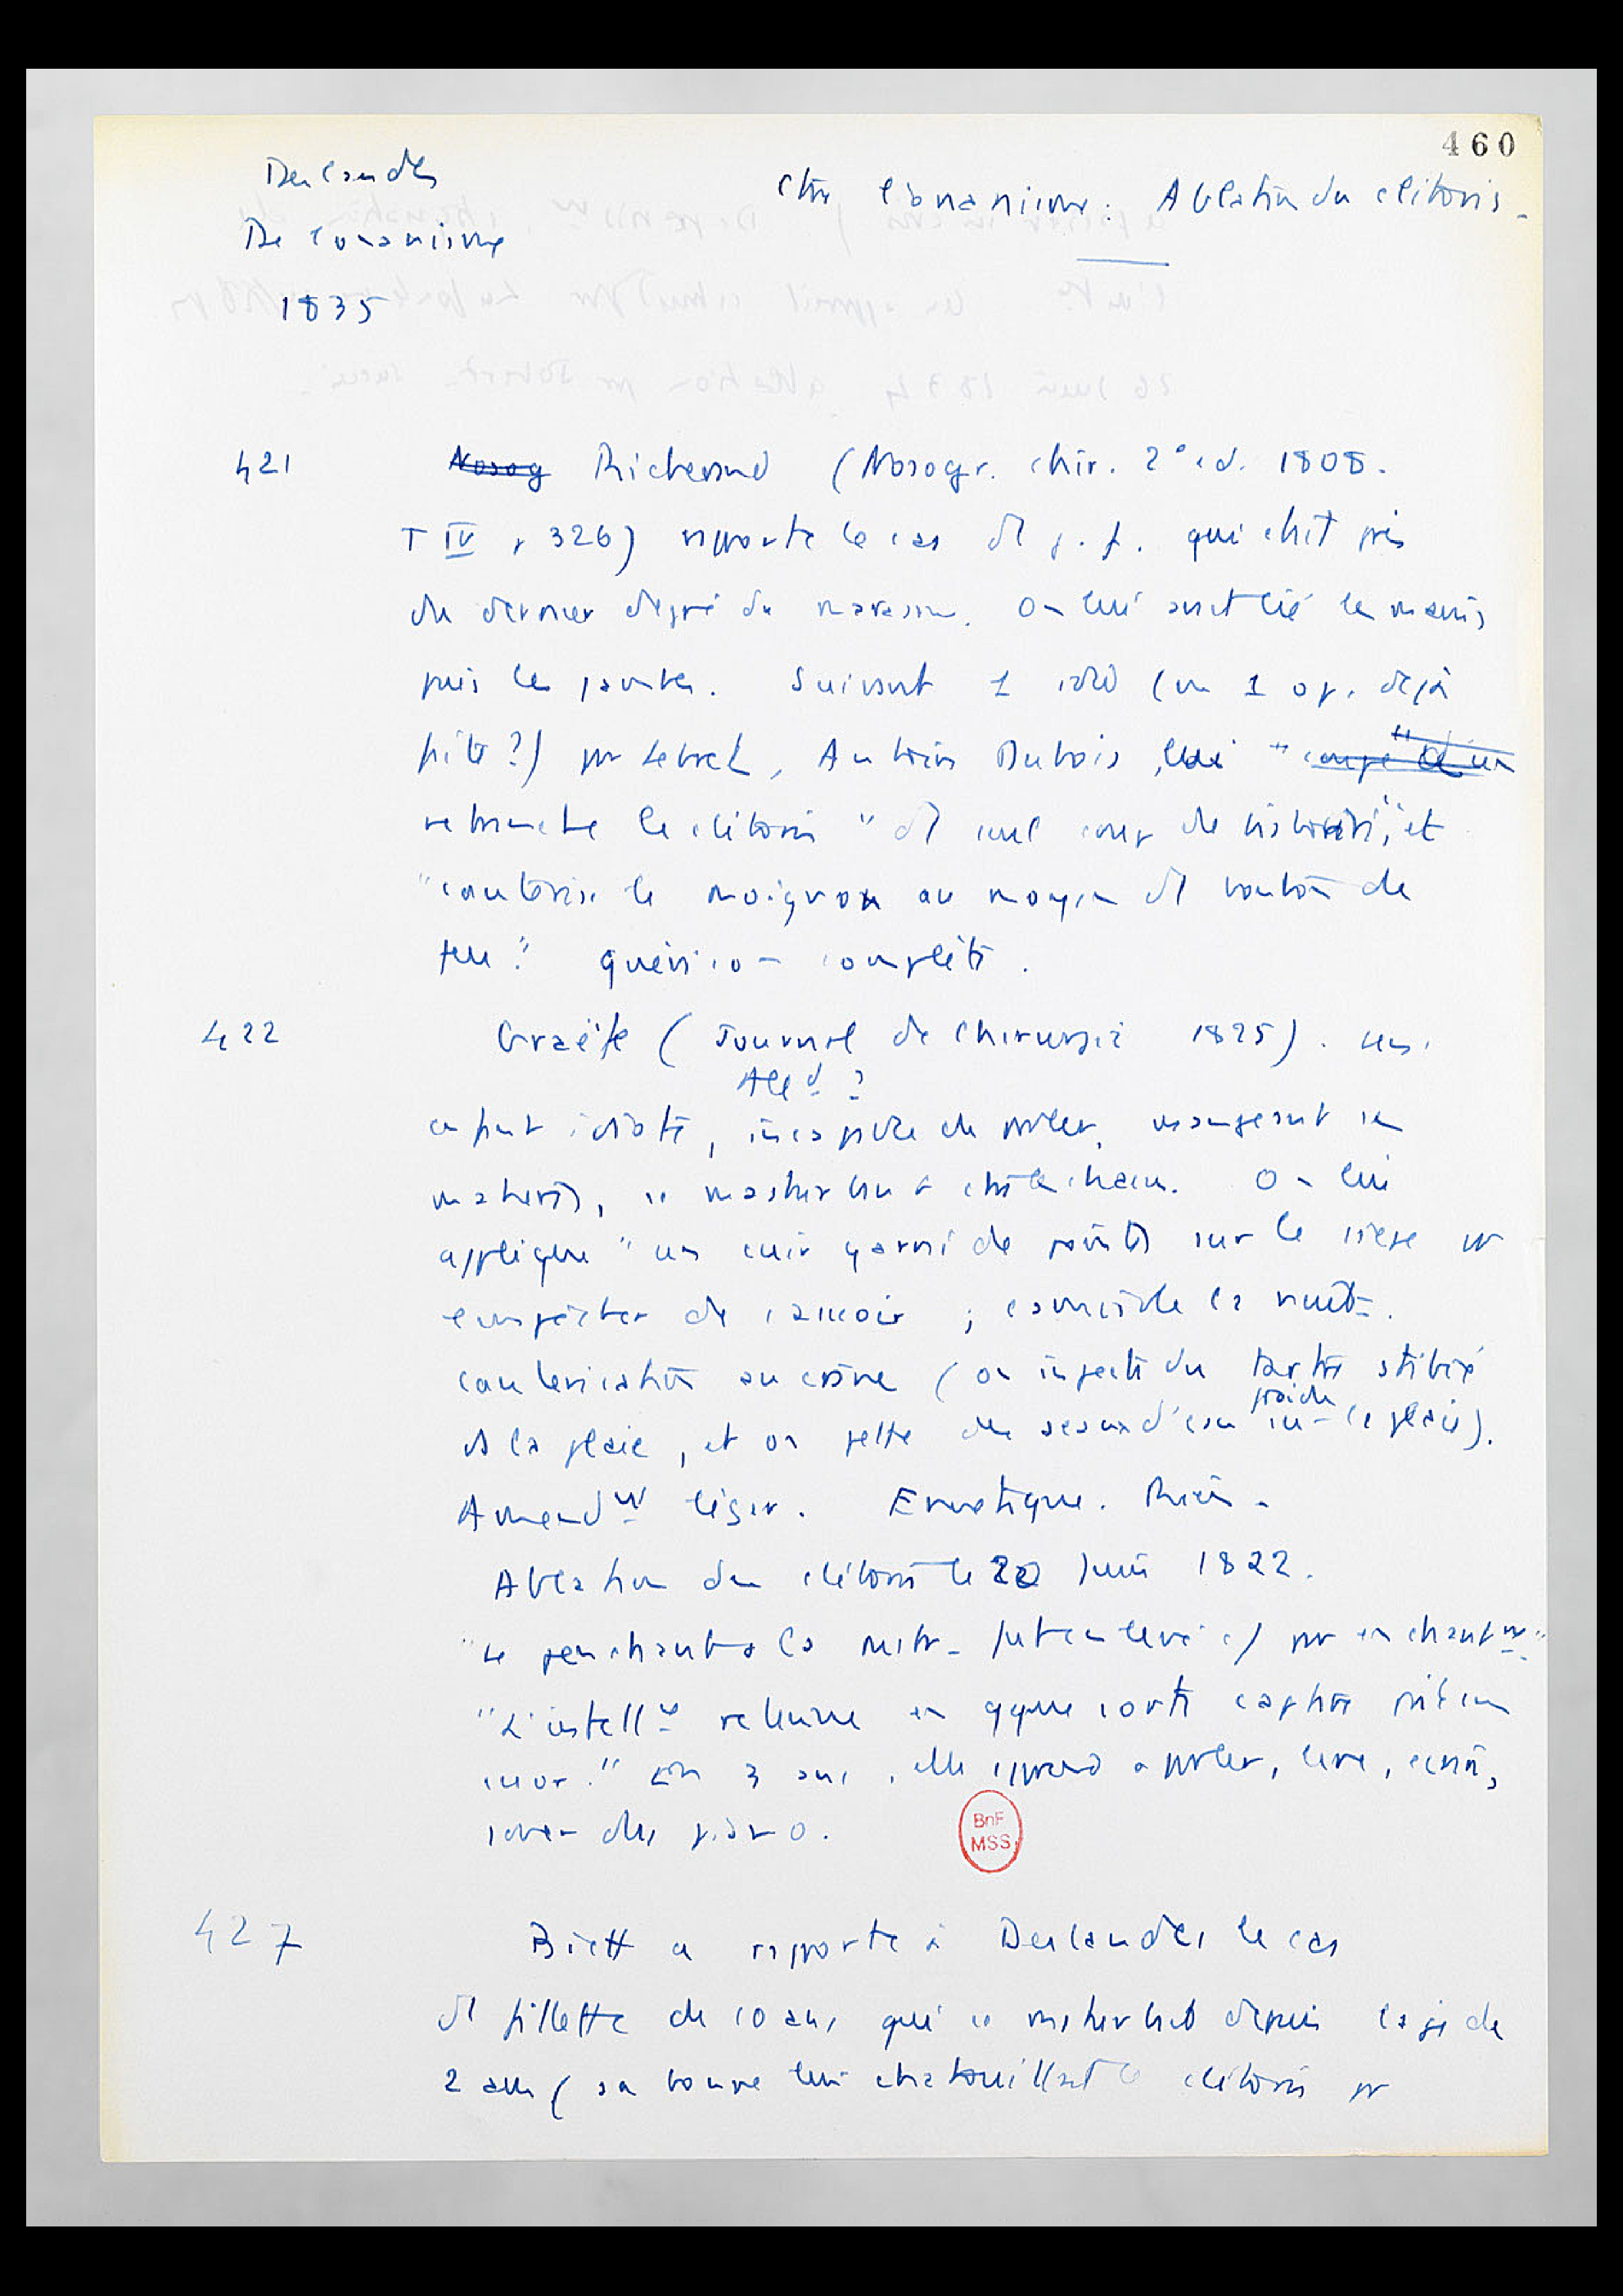 460
Deslandes
De l'onanisme
1835
Ctre l'onanisme : Ablation du clitoris.
421
Nosog Richerand (Nosogr. chir. 2° ed. 1808.
T IV p 326) rapporte le cas d1 j. f. qui était près
du dernier degré du marasme. On lui avait lié les mains
puis les jambes. Suivant 1 idée (ou 1 op. déjà
faite ?) par Levret, Antoine Dubois, lui "coupe" d'un
retranche le clitoris "d1 seul coup de bistouri", et
"cautérise le moignon au moyen d1 bouton de
feu". Guérison complète.
422
Graëfe (Journal de Chirurgie 1825).
Alld ?
enfant idiote, incapable de parler, mangeant ses
matières, se masturbant
On lui
applique "un cuir garni de pointes sur le siège pr
empêcher de s'asseoir ; camisole la nuit".
Cautérisation au crâne (on injecte du tartre stibié
ds la plaie, et on jette des seaux d'eau froide sur la plaie).
Amendt léger. Emétique. Rien.
Ablation du clitoris le 20 Juin 1822.
"Le penchant à la mstr. fut enlevé c/ par enchantt"
"L'intelle retenue en qque sorte captive prit son
essor." En 3 ans, elle apprend à parler, lire, écrire,
jouer du piano.
BnF
MSS
427
Biett a rapporté à Deslandes le cas
d1 fillette de 10 ans qui se masturbait depuis l'âge de
2 ans (sa bonne lui chatouillait le clitoris pr